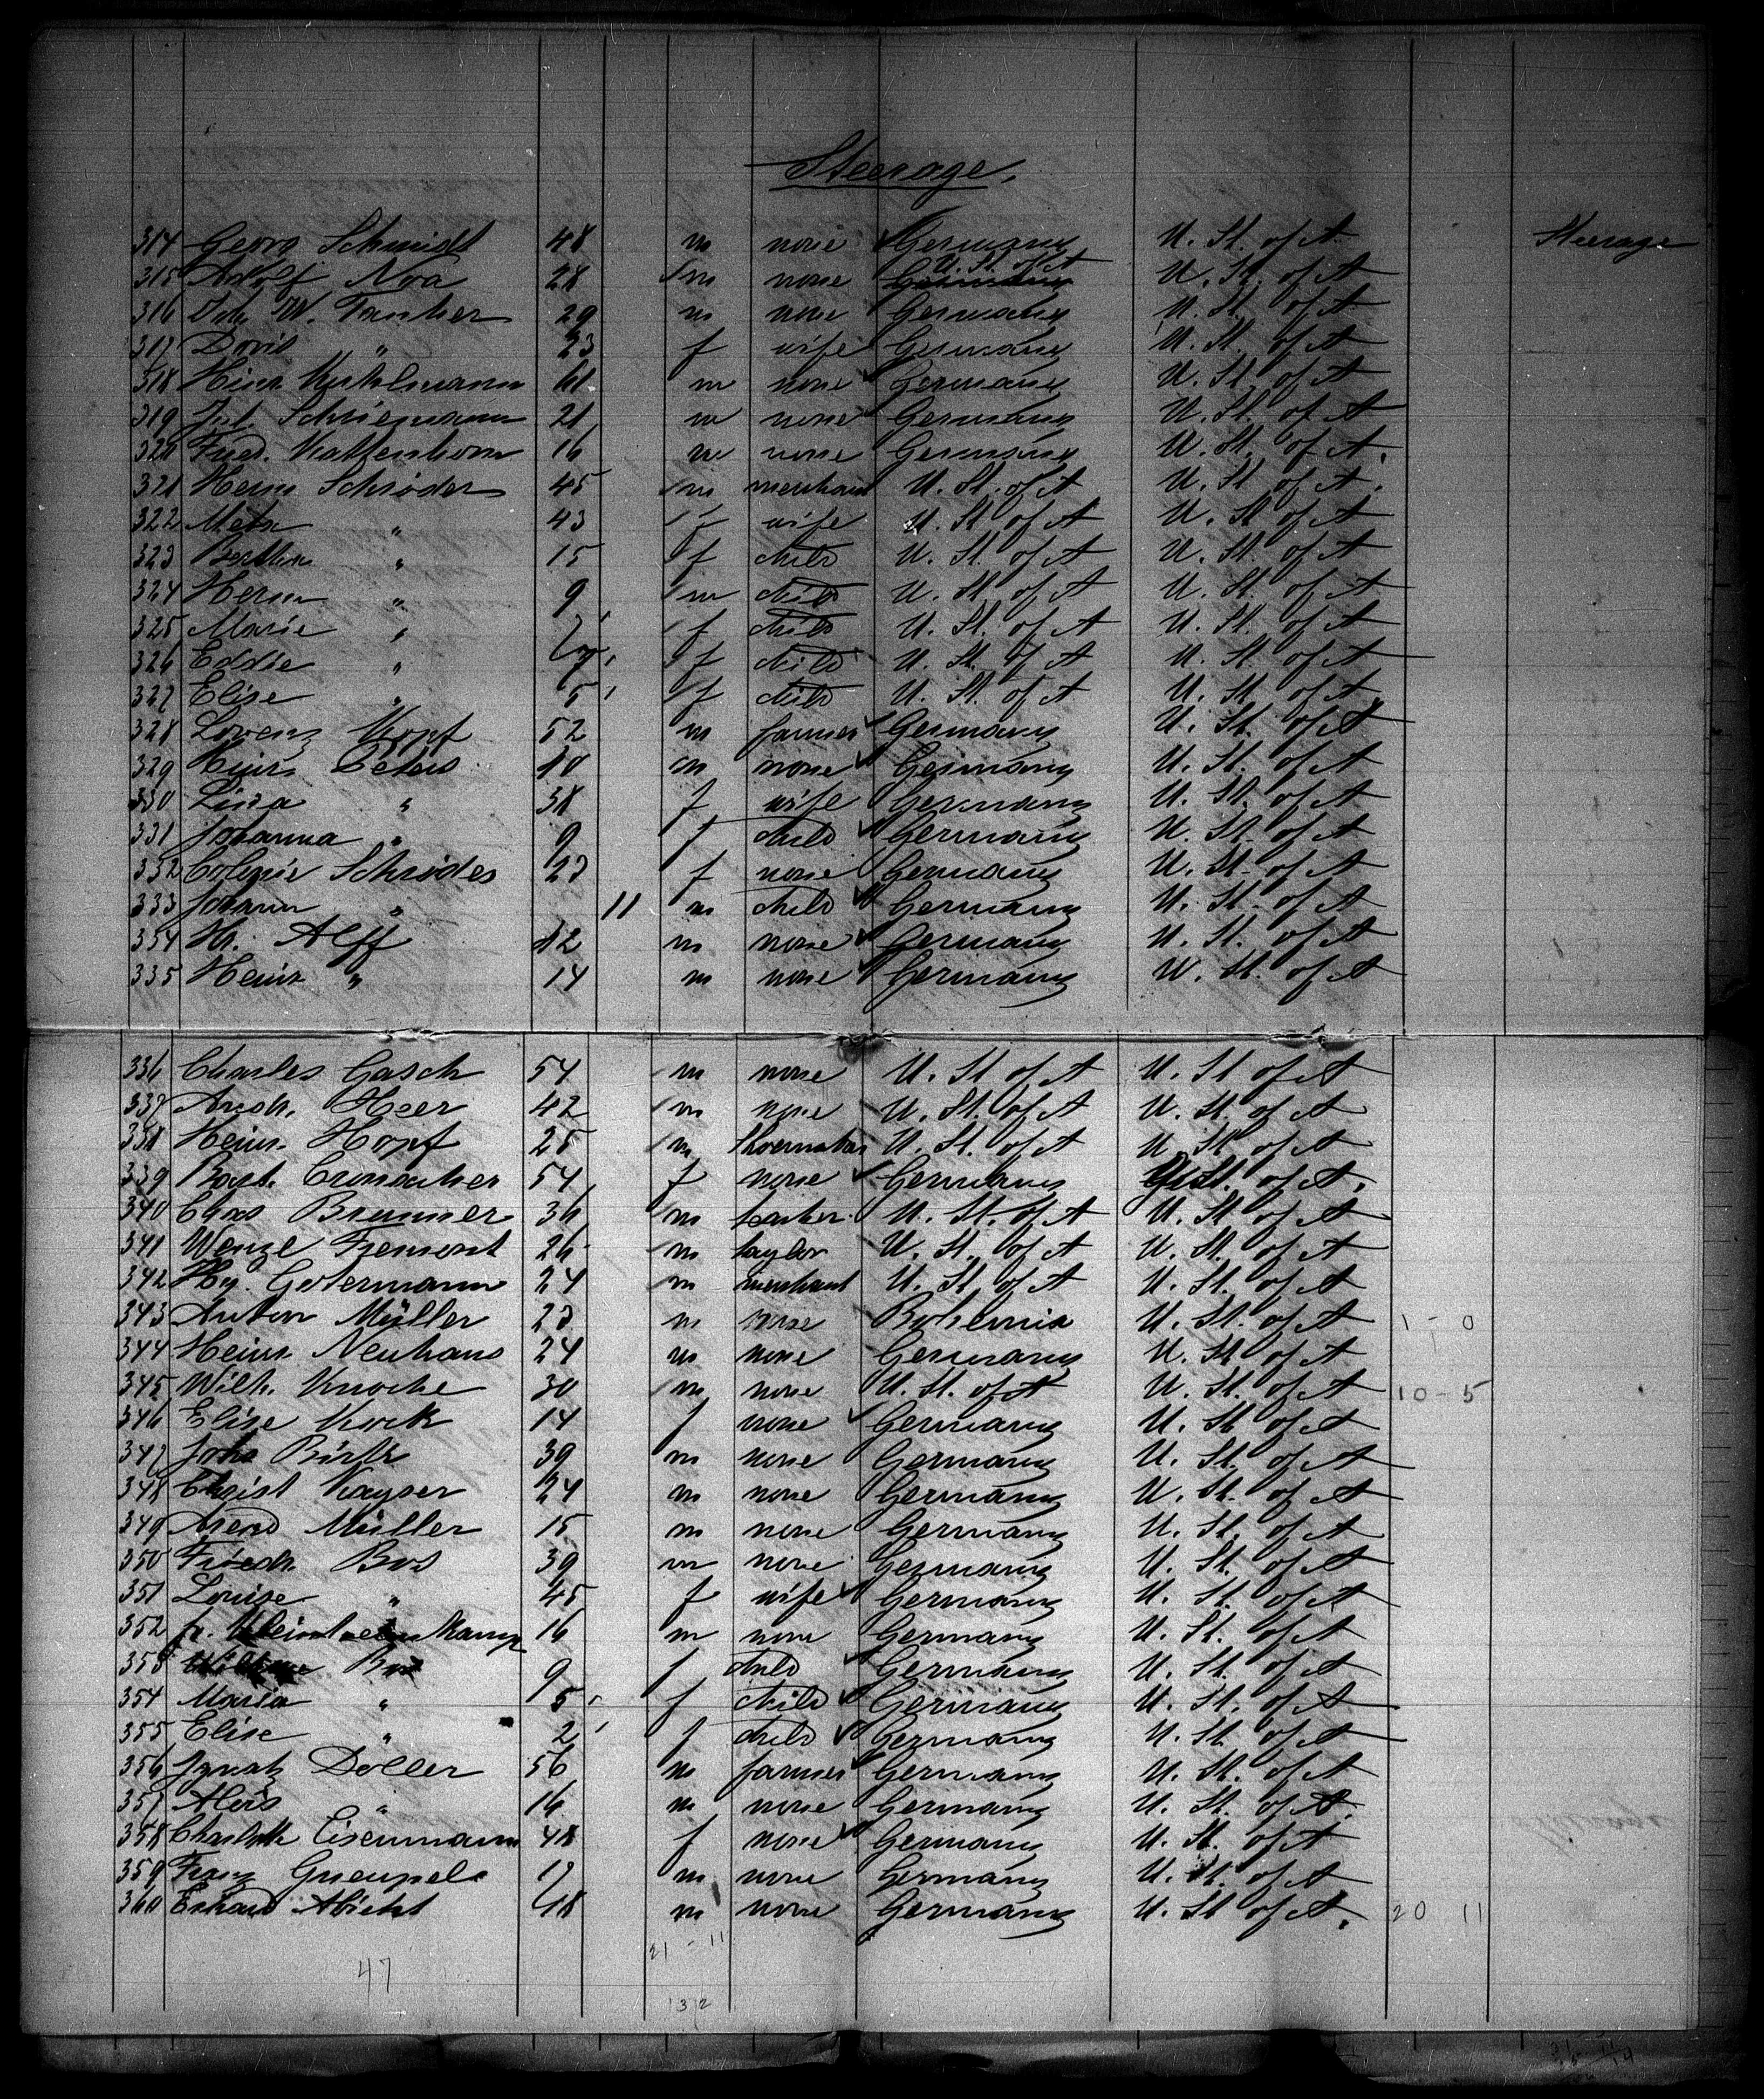 Steerage.
314 Georg Schmidt 48 m none Germany U. St. of A. Steerage
U. St. of A
315 Adolf Noa 28 m none Germany U. St. of A
316 Joh. W. Tanker 29 m none Germany U. St. of A
317 Doris " 23 f wife Germany U. St. of A
318 Heinr. 61 m none Germany U. St. of A
319 Jul. 21 m none Germany U. St. of A
320 Fried. Kattenhorn 16 m none Germany U. St. of A.
321 Herm. Schröder 45 m merchant U. St. of A U. St. of A.
322 Meta " 43 f wife U. St. of A U. St. of A
323 Bertha " 15 f child U. St. of A U. St. of A
324 Herm " 9 m child U. St. of A U. St. of A
325 Marie " f child U. St. of A U. St. of A
326 Eddie " f child U. St. of A U. St. of A
327 Elise " 5 f child U. St. of A U. St. of A
328 Lorenz Kopf 52 m farmer Germany U. St. of A
329 Heinr. Peters 40 m none Germany U. St. of A
330 Lina " 38 f wife Germany U. St. of A
331 Johanna " 9 f child Germany U. St. of A
332 Schröder 23 f none Germany U. St. of A
333 Johann " 11 m child Germany U. St. of A
334 H. Alff 42 m none Germany U. St. of A
335 Heinr " 14 m none Germany U. St. of A
336 Charles Gasch 54 m none U. St. of A U. St. of A
337 Heer 42 m none U. St. of A U. St. of A
338 Heinr. Hopf 25 m Shoemaker U. St. of A U. St. of A
339 Barb. 54 f none Germany U. St. of A.
340 Chas Brunner 36 m U. St. of A U. St. of A
341 Wenzl Fremont 26 m taylor U. St. of A U. St. of A
342 Hy. Gotermann 24 m merchant U. St. of A U. St. of A
343 Anton Müller 23 m none Bohemia U. St. of A 1 - 0
344 Heinr. Neuhaus 24 m none Germany U. St. of A
345 Wilh. Knoche 30 m none U. St. of A U. St. of A 10 - 5
346 Elise Kock 14 f none Germany U. St. of A
347 John 39 m none Germany U. St. of A
348 Christ Kayser 24 m none Germany U. St. of A
349 Arend Müller 15 m none Germany U. St. of A
350 Friedr. Bos 39 m none Germany U. St. of A
351 Louise " 45 f wife Germany U. St. of A
352 16 m none Germany U. St. of A
353 Bos 9 f child Germany U. St. of A
354 Maria " 5 f child Germany U. St. of A
355 Elise " 2 f child Germany U. St. of A
356 Ignatz Doller 56 m farmer Germany U. St. of A
357 Alois " 16 m none Germany U. St. of A.
358 Charlotte Eisenmann 48 f none Germany U. St. of A
359 Franz Gnempel 17 m none Germany U. St. of A
360 Erhard Abicht 48 m none Germany U. St. of A. 20 11
21 - 11
47
32